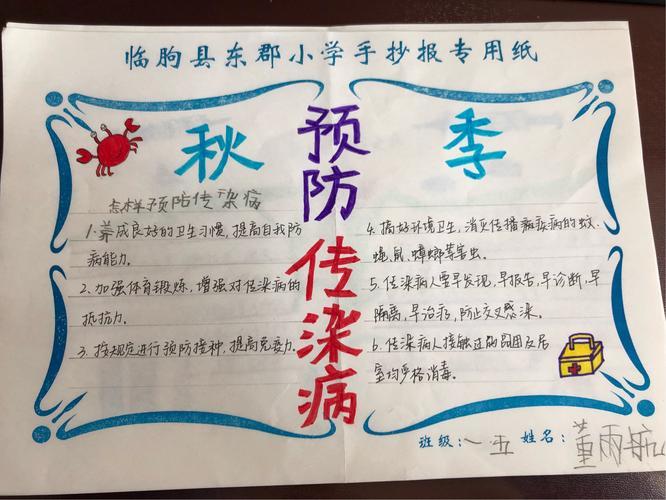 临朐县东郡小学手抄报专用纸
秋季
预防
传染病
怎样预防传染病
1.养成良好的卫生习惯,提高自我防
病能力。
2.加强体育锻炼,增强对传染病的
抵抗力。
3.按规定进行预防接种,提高免疫力。
4.搞好环境卫生,消灭传播疾病的蚊、
蝇、鼠、蟑螂等害虫。
5.传染病人要早发现,早报告,早诊断,早
隔离,早治疗,防止交叉感染。
6.传染病人接触过的用品及居
室均严格消毒。
班级:一.五 姓名:董雨航